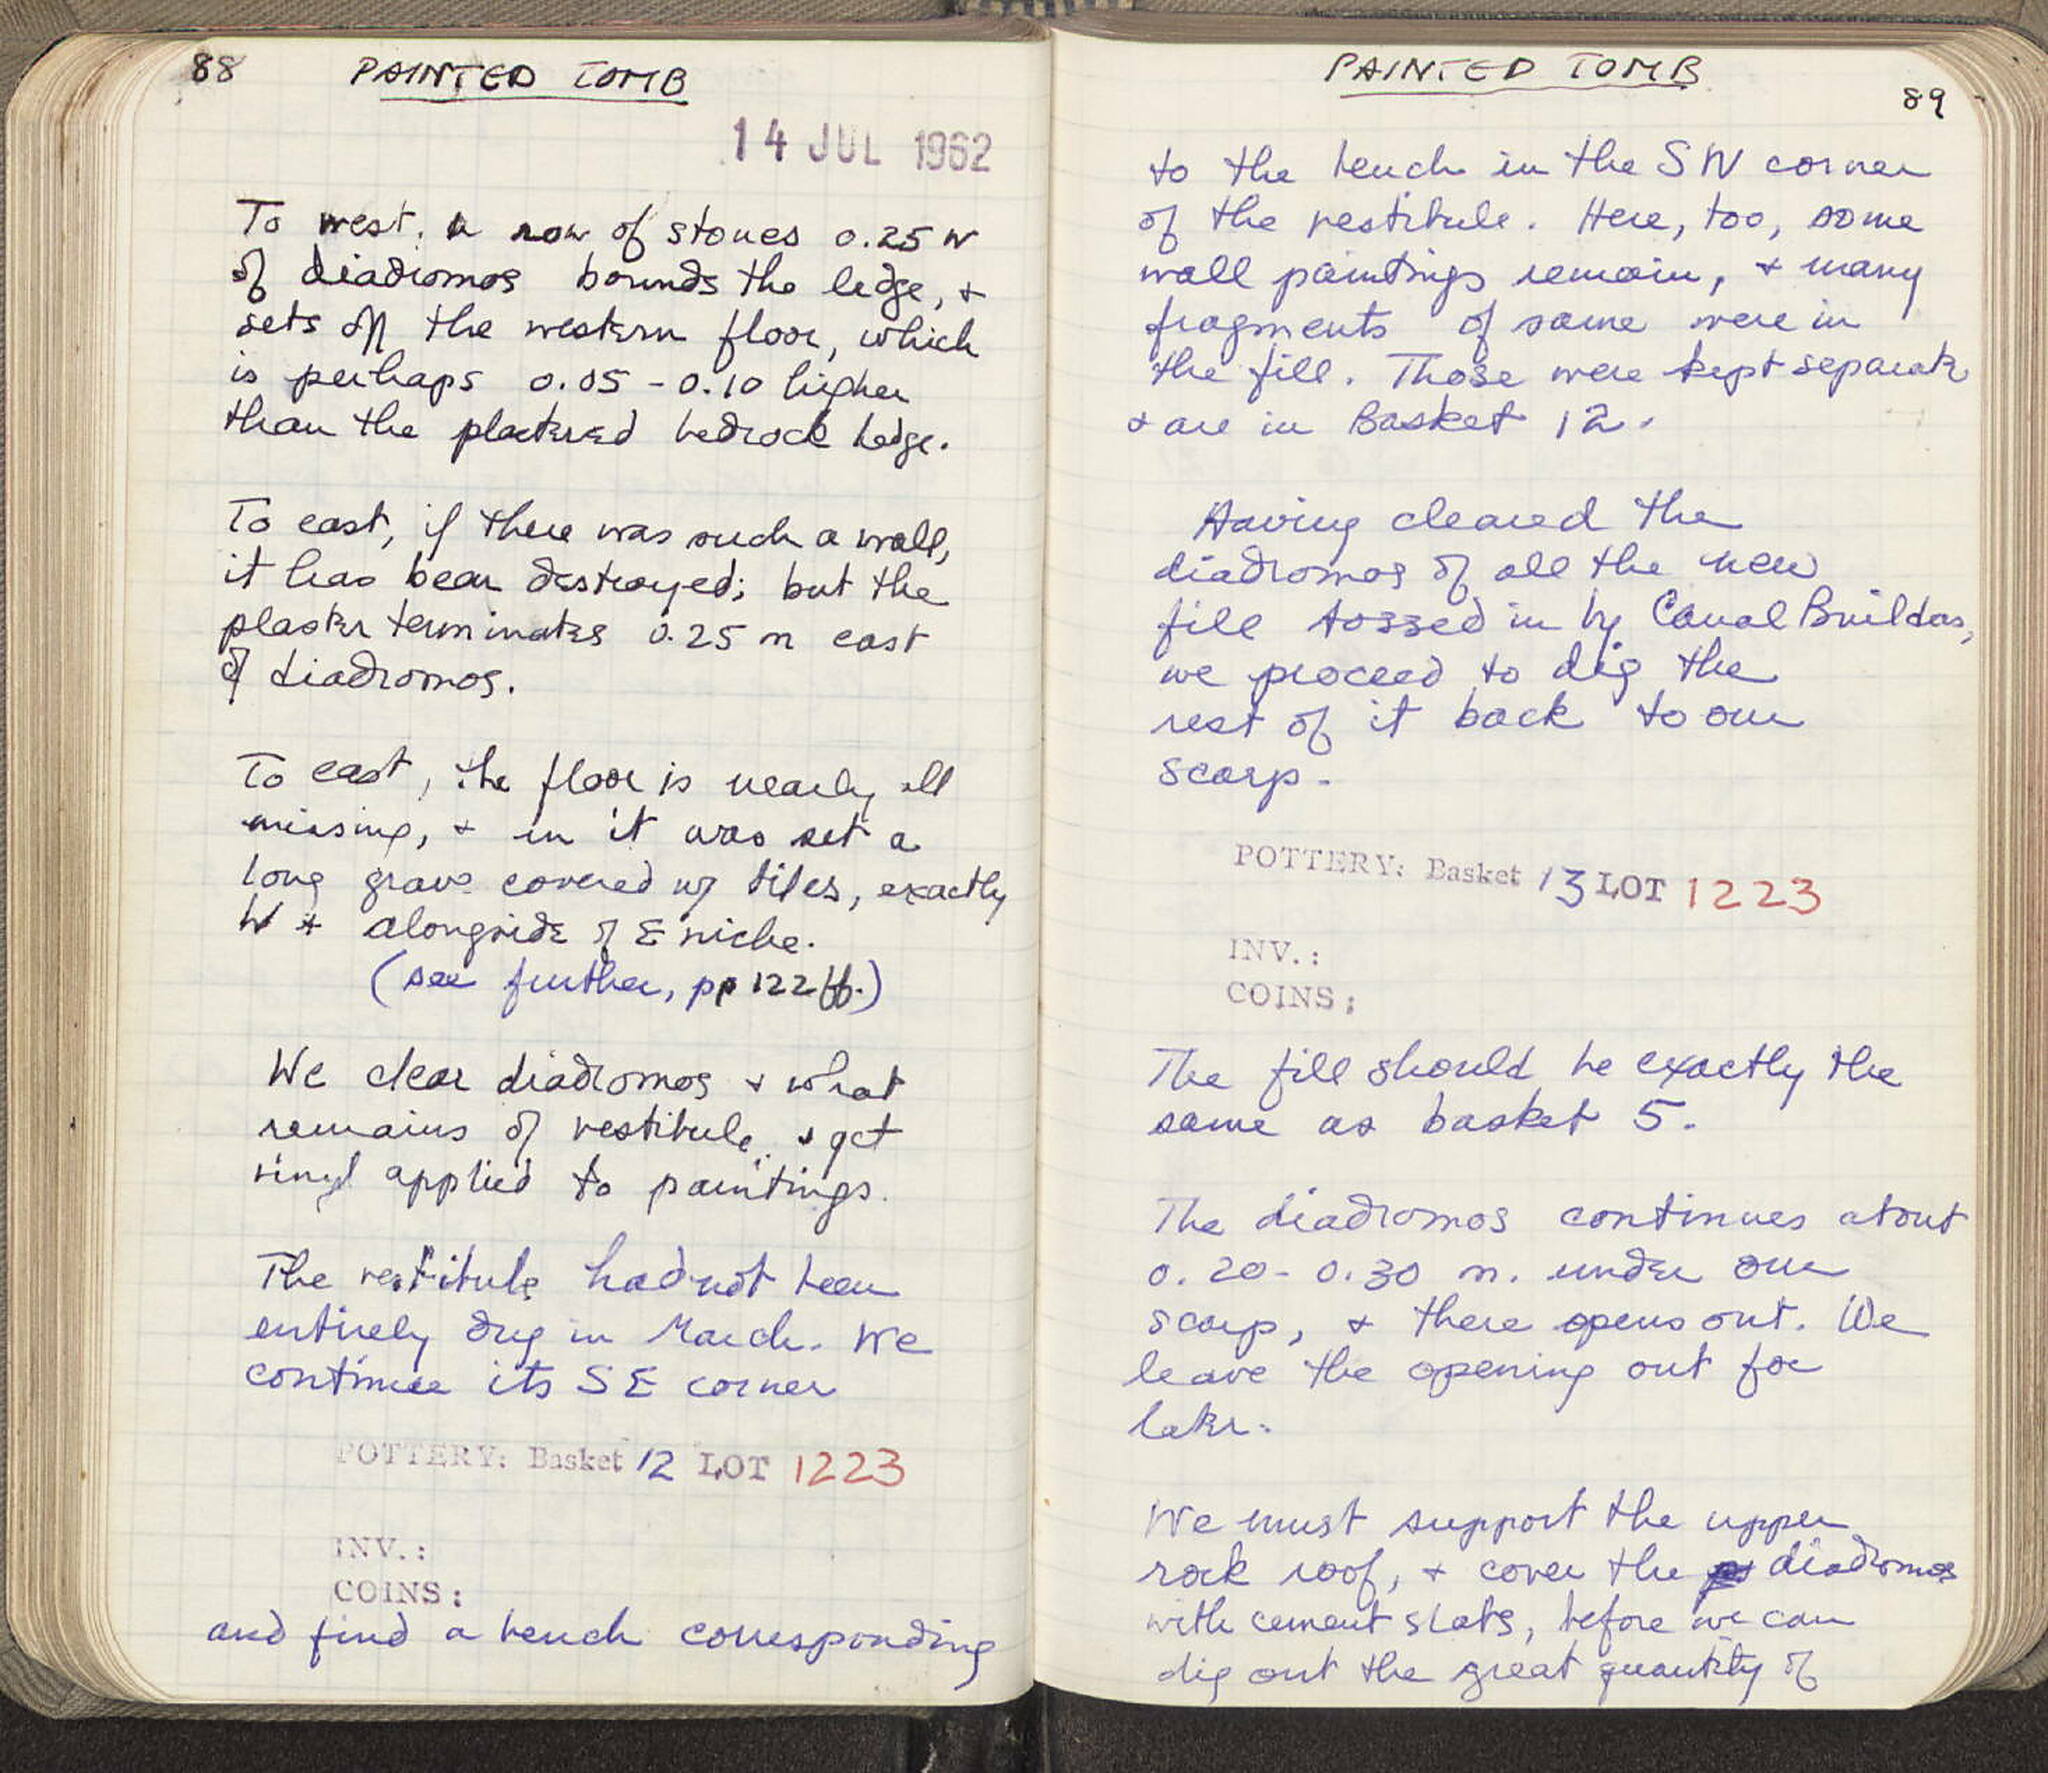 88
PAINTED TOMB
14 JUL 1962
To west, a row of stones 0.25 W
of diadromos bounds the ledge, +
sets off the western floor, which
is perhaps 0.05 - 0.10 higher
than the plastered bedrock ledge.
To east, if there was such a wall,
it has been destroyed; but the
plaster terminates 0.25 m east
of diadromos.
To east, the floor is nearly all
missing, + in it was set a
long grave covered w/ tiles, exactly
W + alongside of E niche.
(see further, pp 122 ff.)
We clear diadromos + what
remains of vestibule, + get
vinyl applied to paintings.
The vestibule had not been
entirely dug in March. We
continue its SE corner
POTTERY: Basket 12 LOT 1223
INV.:
COINS:
and find a bench corresponding
PAINTED TOMB
89
to the bench in the SW corner
of the vestibule. Here, too, some
wall paintings remain, + many
fragments of same were in
the fill. Those were kept separate
+ are in Basket 12.
Having cleared the
diadromos of all the new
fill tossed in by Canal Builders,
we proceed to dig the
rest of it back to our
scarp.
POTTERY: Basket 13 LOT 1223
INV.:
COINS:
The fill should be exactly the
same as basket 5.
The diadromos continues about
0.20 - 0.30 m. under our
scarp, + there opens out. We
leave the opening out for
later.
We must support the upper
rock roof, + cover the diadromos
with cement slabs, before we can
dig out the great quantity of